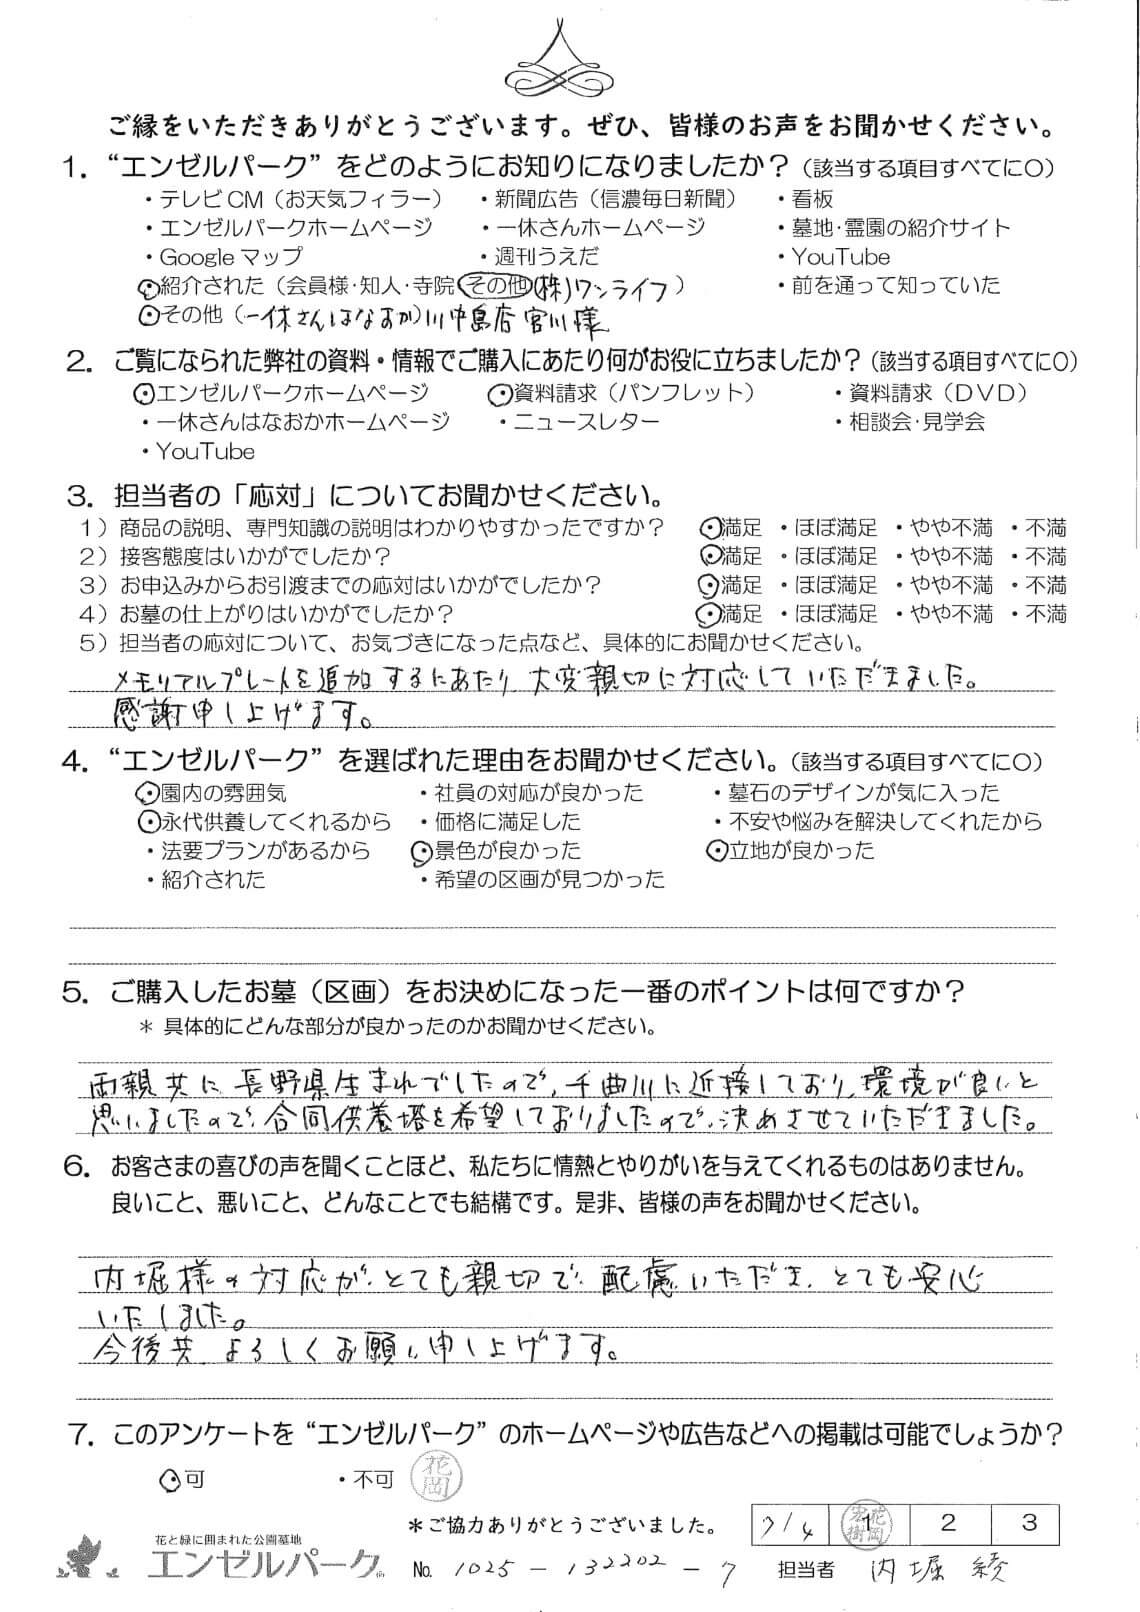 ご縁をいただきありがとうございます。ぜひ、皆様のお声をお聞かせください。
1. “エンゼルパーク” をどのようにお知りになりましたか？（該当する項目すべてに○）
・テレビCM（お天気フィラー） ・新聞広告（信濃毎日新聞） ・看板
・エンゼルパークホームページ ・一休さんホームページ ・墓地・霊園の紹介サイト
・Google マップ ・週刊うえだ ・YouTube
・紹介された（会員様・知人・寺院 その他 (株)ワンライフ ） ・前を通って知っていた
・その他（一休さんはなおか）川中島店 宮川様
2. ご覧になられた弊社の資料・情報でご購入にあたり何がお役に立ちましたか？（該当する項目すべてに○）
・エンゼルパークホームページ ・資料請求（パンフレット） ・資料請求（DVD）
・一休さんはなおかホームページ ・ニュースレター ・相談会・見学会
・YouTube
3. 担当者の「応対」についてお聞かせください。
1）商品の説明、専門知識の説明はわかりやすかったですか？ ・満足 ・ほぼ満足 ・やや不満 ・不満
2）接客態度はいかがでしたか？ ・満足 ・ほぼ満足 ・やや不満 ・不満
3）お申込みからお引渡までの応対はいかがでしたか？ ・満足 ・ほぼ満足 ・やや不満 ・不満
4）お墓の仕上がりはいかがでしたか？ ・満足 ・ほぼ満足 ・やや不満 ・不満
5）担当者の応対について、お気づきになった点など、具体的にお聞かせください。
メモリアルプレートを追加するにあたり、大変親切に対応していただきました。
感謝申し上げます。
4. “エンゼルパーク” を選ばれた理由をお聞かせください。（該当する項目すべてに○）
・園内の雰囲気 ・社員の対応が良かった ・墓石のデザインが気に入った
・永代供養してくれるから ・価格に満足した ・不安や悩みを解決してくれたから
・法要プランがあるから ・景色が良かった ・立地が良かった
・紹介された ・希望の区画が見つかった
5. ご購入したお墓（区画）をお決めになった一番のポイントは何ですか？
＊ 具体的にどんな部分が良かったのかお聞かせください。
両親共に長野県生まれでしたので、千曲川に近接しており、環境が良いと
思いましたので、合同供養塔を希望しておりましたので、決めさせていただきました。
6. お客さまの喜びの声を聞くことほど、私たちに情熱とやりがいを与えてくれるものはありません。
良いこと、悪いこと、どんなことでも結構です。是非、皆様の声をお聞かせください。
内堀様の対応が、とても親切で、配慮いただき、とても安心
いたしました。
今後共、よろしくお願い申し上げます。
7. このアンケートを “エンゼルパーク” のホームページや広告などへの掲載は可能でしょうか？
・可 ・不可 花岡
＊ご協力ありがとうございました。 7/4 1 花岡宏樹 2 3
花と緑に囲まれた公園墓地
エンゼルパーク No. 1025 － 132202 － 7 担当者 内堀 綾